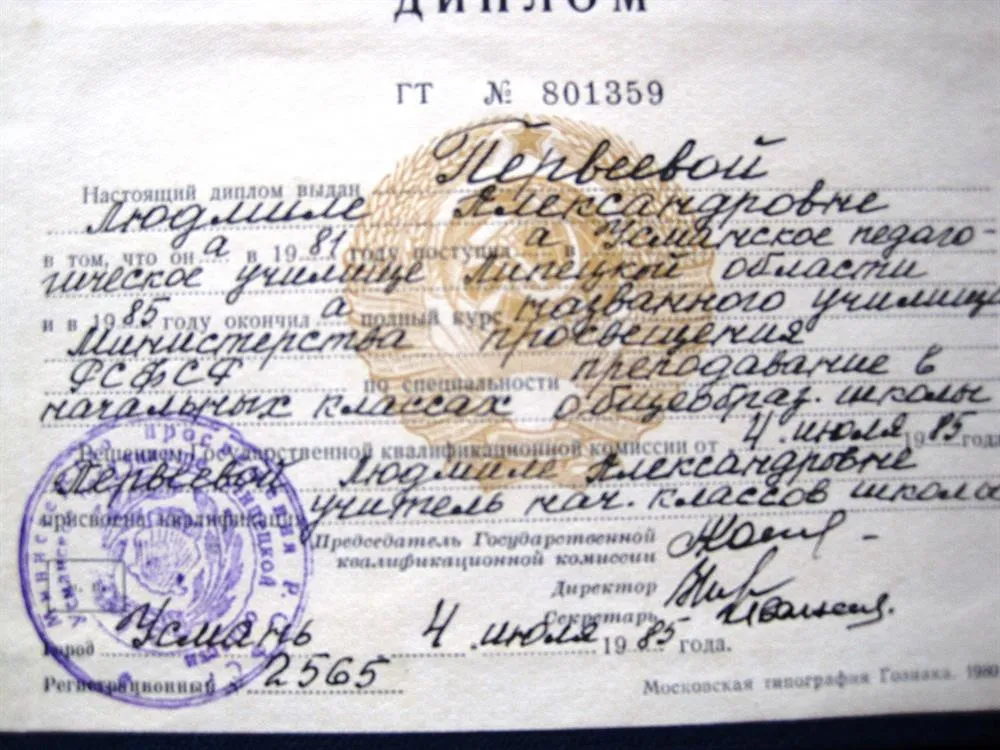 ДИПЛОМ
ГТ № 801359
Настоящий диплом выдан Первеевой
Людмиле Александровне
в том, что он а в 1981 году поступил а в Усманское педаго-
гическое училище Липецкой области
и в 1985 году окончил а полный курс названного училища
Министерства просвещения
РСФСР по специальности преподавание в
начальных классах общеобраз. школы
Решением Государственной квалификационной комиссии от 4 июля 1985 года
Первеевой Людмиле Александровне
присвоена квалификация учитель нач. классов школы
Председатель Государственной
квалификационной комиссии
Директор
Секретарь
Город Усмань 4 июля 1985 года.
Регистрационный № 2565
Московская типография Гознака. 1980